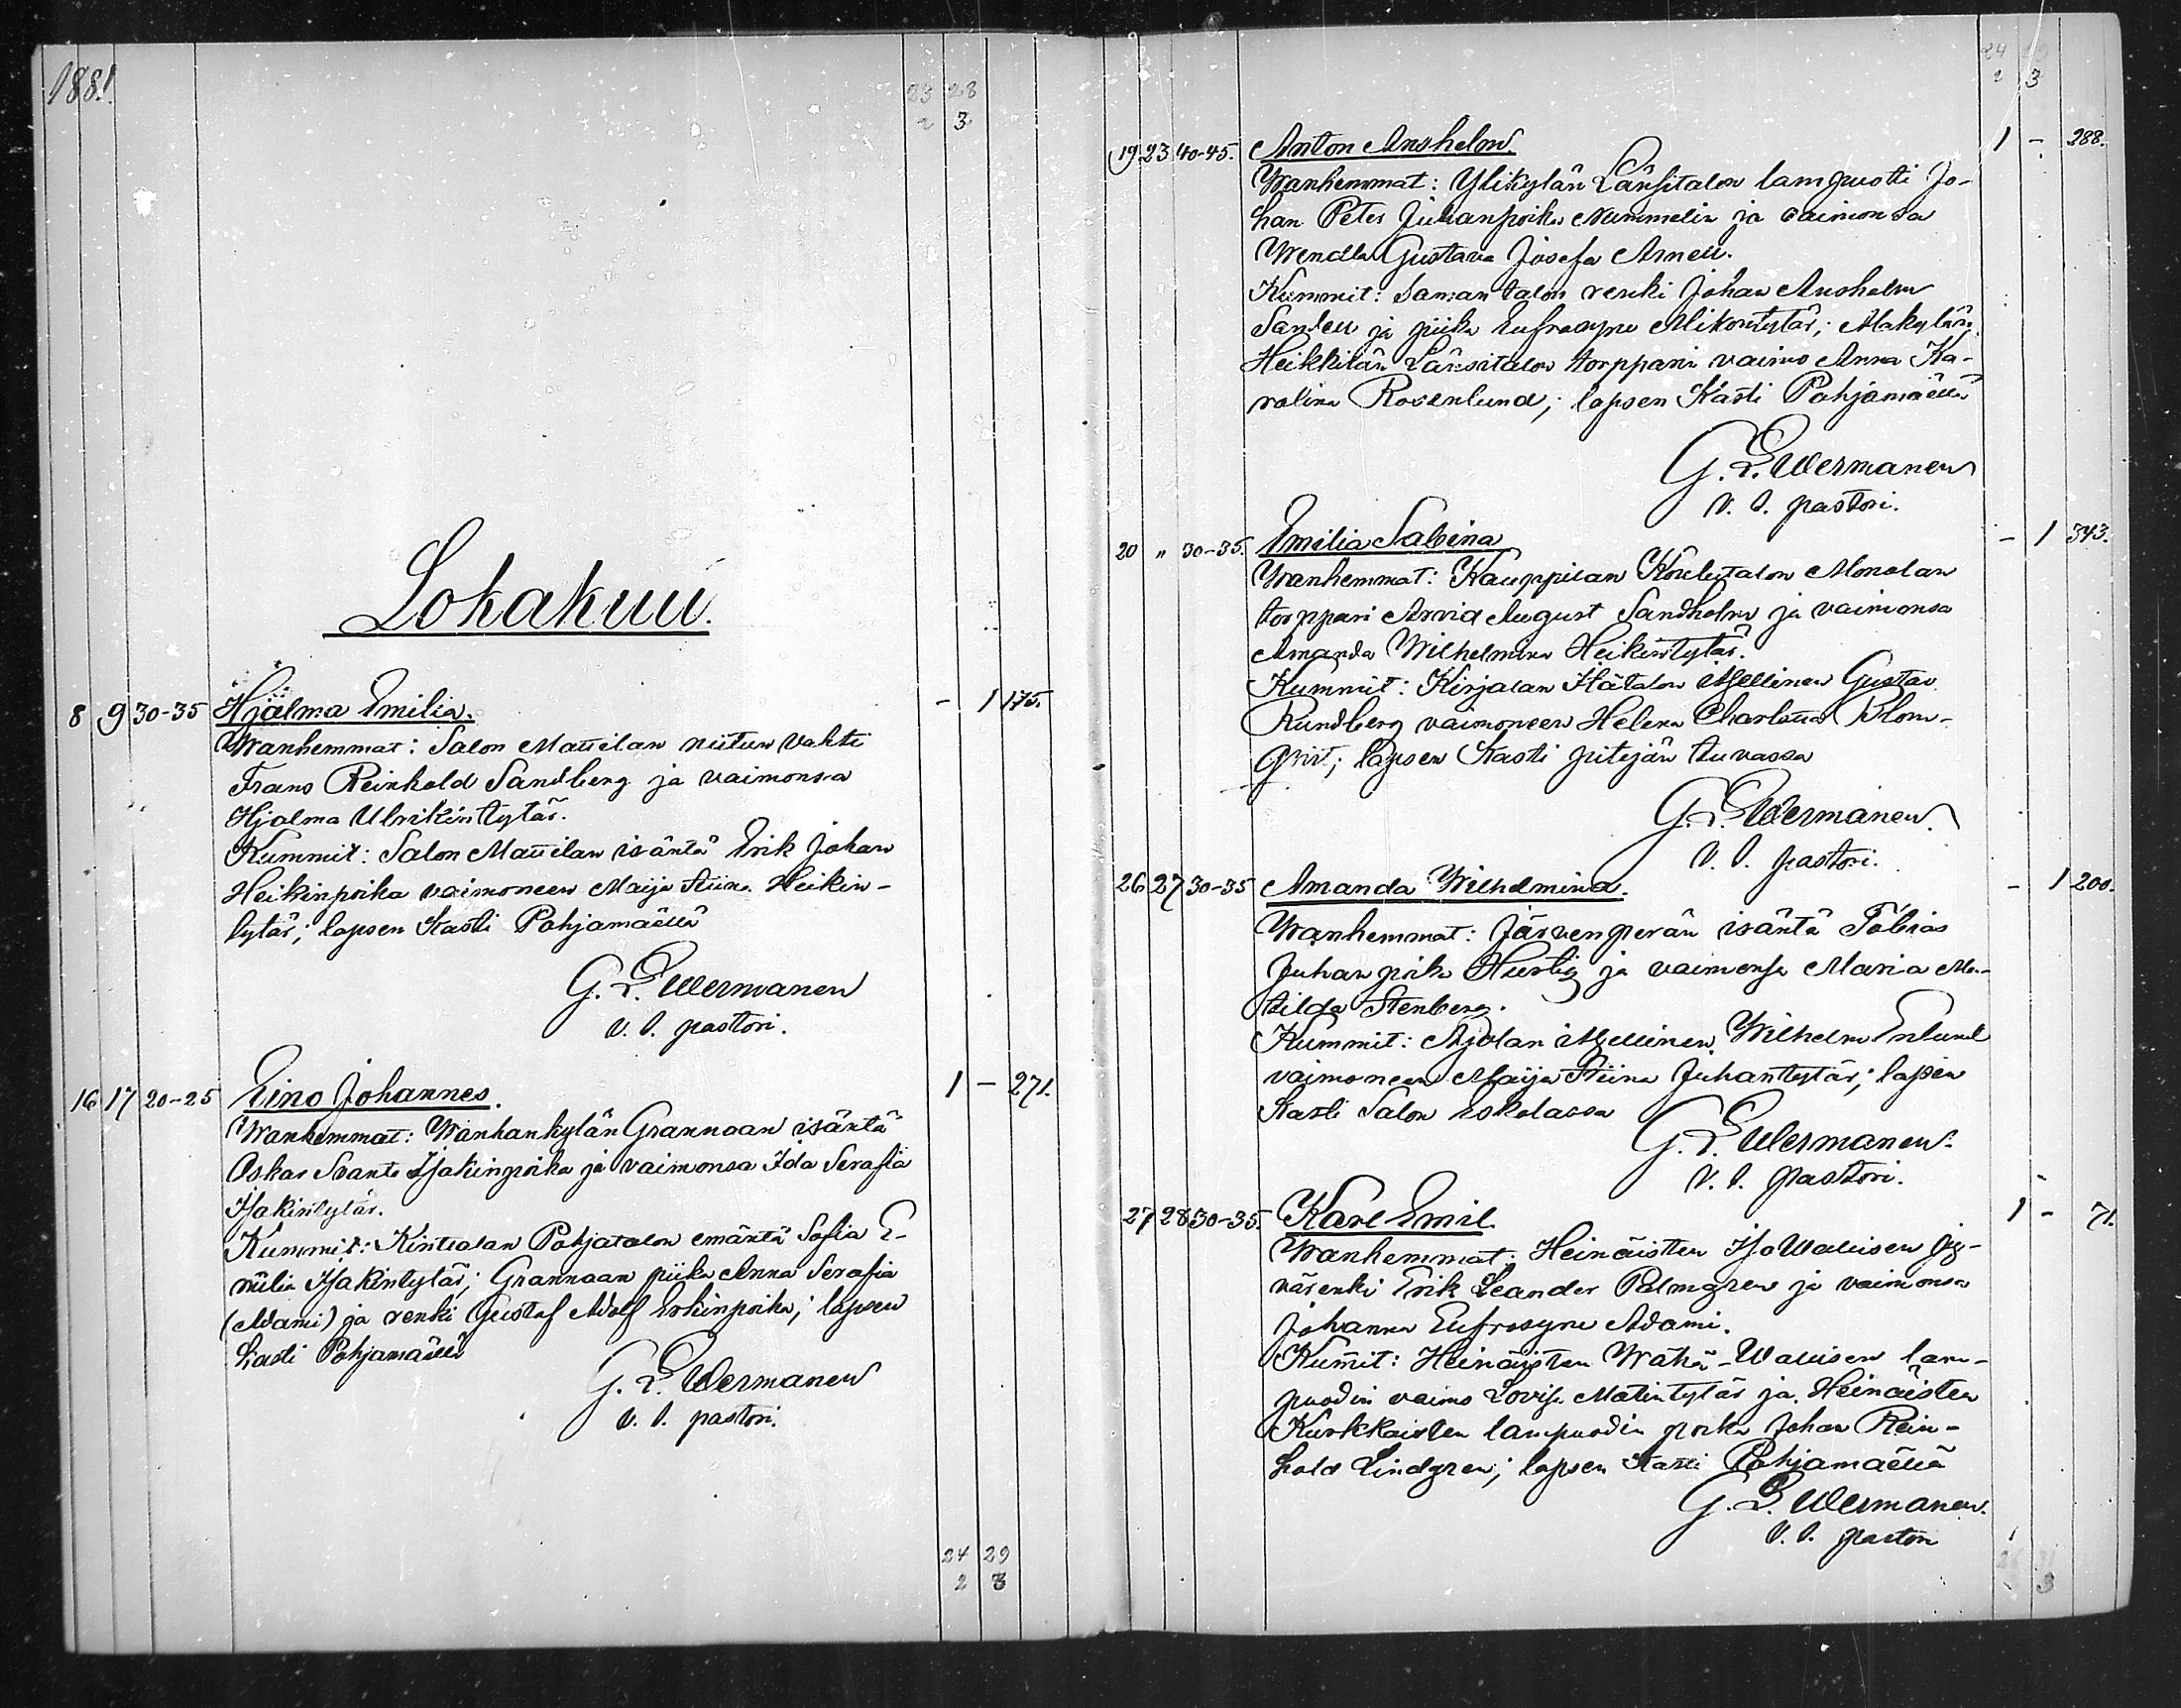 1881.
23 28
2 3
Lokakuu.
8 9 30-35 Hjalma Emilia. - 1 175.
Wanhemmat: Salon Mattilan niitun vahti
Frans Reinhold Sandberg ja vaimonsa
Hjalma Ulrikintytär.
Kummit: Salon Mattilan isäntä Erik Johan
Heikinpoika vaimoneen Maija Stiina Heikin-
tytär; lapsen kasti Pohjamaëllä
G. L. Wermanen
v. t. pastori.
16 17 20-25 Eino Johannes. 1 - 271.
Wanhemmat: Wanhankylän Grannaan isäntä
Oskar Svante Isakinpoika ja vaimonsa Ida Serafia
Isakintytär.
Kummit: Pohjatalon emäntä Sofia E-
milia Isakintytär; Grannaan piika Anna Serafia
(Adami) ja renki Gustaf Adolf Erkinpoika; lapsen
kasti Pohjamaëllä
G. L. Wermanen
v. t. pastori.
24 29
2 3
24
2 3
19 23 40-45. Anton Anshelm. 1 - 288.
Wanhemmat: Ylikylän Länsitalon lampuoti Jo-
han Peter Juhanpoika Nummelin ja vaimonsa
Wendla Gustava Josefa Arnell.
Kummit: Saman talon renki Johan Anshelm
Sandell ja piika Eufrosyne Mikontytär; Alakylän
Heikkilän Länsitalon torpparin vaimo Anna Ka-
rolina Rosenlund; lapsen kasti Pohjamaëllä
G. L. Wermanen
v. t. pastori.
20 " 30-35. Emilia Sabina - 1 343.
Wanhemmat: Kauppilan Monolan
torppari Arvid August Sandholm ja vaimonsa
Amanda Wilhelmina Heikintytär.
Kummit: Kirjalan Itätalon itsellinen Gustav
Rundberg vaimoneen Helena Charlotta Blom-
qvist; lapsen kasti pitäjän tuvassa
G. L. Wermanen.
v. t. pastori.
26 27 30-35 Amanda Wilhelmina. - 1 200.
Wanhemmat: Järvenperän isäntä Tobias
Juhanpoika Hurtig ja vaimonsa Maria Ma-
tilda Stenberg.
Kummit: Ajolan itsellinen Wilhelm Enlund
vaimoneen Maija Stiina Juhantytär; lapsen
kasti Salon Eskolassa
G. L. Wermanen.
v. t. pastori.
27 28 30-35. Karl Emil. 1 - 71.
Wanhemmat: Heinäisten Iso Wallisen jy-
närenki Erik Leander Palmgren ja vaimonsa
Johanna Eufrosyne Adami.
Kum̄it: Heinäisten Wähä-Wallisen lam-
puodin vaimo Lovisa Matintytär ja Heinäisten
Kurkkaisten lampuodin poika Johan Rein-
hold Lindgren; lapsen kasti Pohjamaëllä
G. L. Wermanen.
v. t. pastori
3